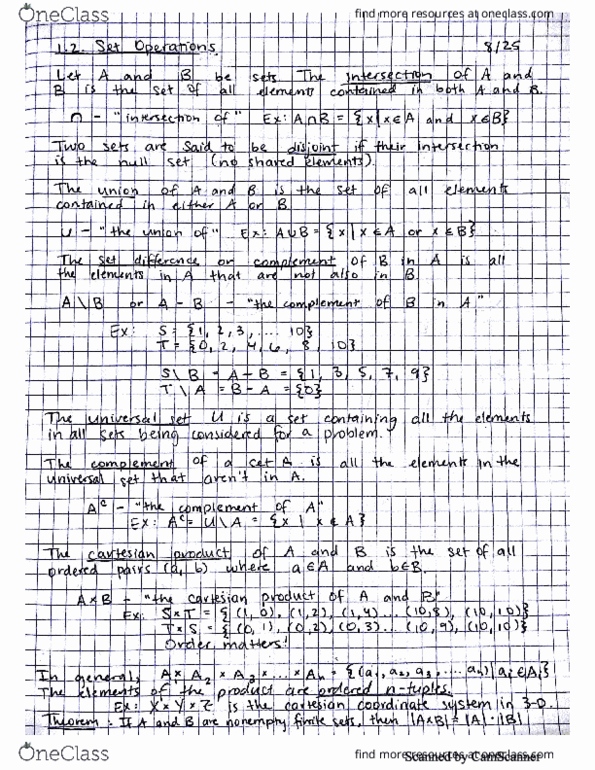 OneClass
find more resources at oneclass.com
1.2. Set Operations 8/25
Let A and B be sets. The intersection of A and
B is the set of all elements contained in both A and B.
∩ - "intersection of" Ex: A∩B = {x|x∈A and x∈B}
Two sets are said to be disjoint if their intersection
is the null set (no shared elements).
The union of A and B is the set of all elements
contained in either A or B.
U - "the union of" Ex: AUB = {x | x∈A or x∈B}
The set difference or complement of B in A is all
the elements in A that are not also in B.
A\B or A-B - "the complement of B in A"
Ex: S = {1, 2, 3, .... 10}
T = {0, 2, 4, 6, 8, 10}
S\B = A-B = {1, 3, 5, 7, 9}
T\A = B-A = {0}
The universal set U is a set containing all the elements
in all sets being considered for a problem.
The complement of a set A is all the elements in the
universal set that aren't in A.
Aᶜ - "the complement of A"
Ex: Aᶜ = U\A = {x | x∉A}
The cartesian product of A and B is the set of all
ordered pairs (a, b) where a∈A and b∈B.
A×B - "the cartesian product of A and B"
Ex: S×T = {(1,0), (1,2), (1,4)... (10,8), (10,10)}
T×S = {(0,1), (0,2), (0,3)... (10,9), (10,10)}
Order matters!
In general, A× A₂ × A₃ × ... × Aₙ = {(a₁, a₂, a₃, ... aₙ) | aᵢ∈Aᵢ}
The elements of the product are ordered n-tuples.
Ex: X×Y×Z is the cartesian coordinate system in 3-D.
Theorem: If A and B are nonempty finite sets, then |A×B| = |A|·|B|
OneClass
find more resources at oneclass.com
Scanned by CamScanner